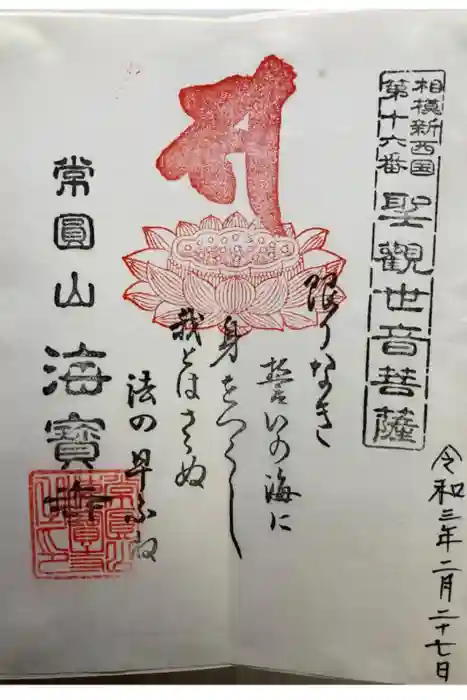 相模新西国
第十六番
聖觀世音菩薩
令和三年二月二十七日
限りなき
誓いの海に
身をつくし
我とはさらぬ
法の早ふね
常圓山
海寶寺